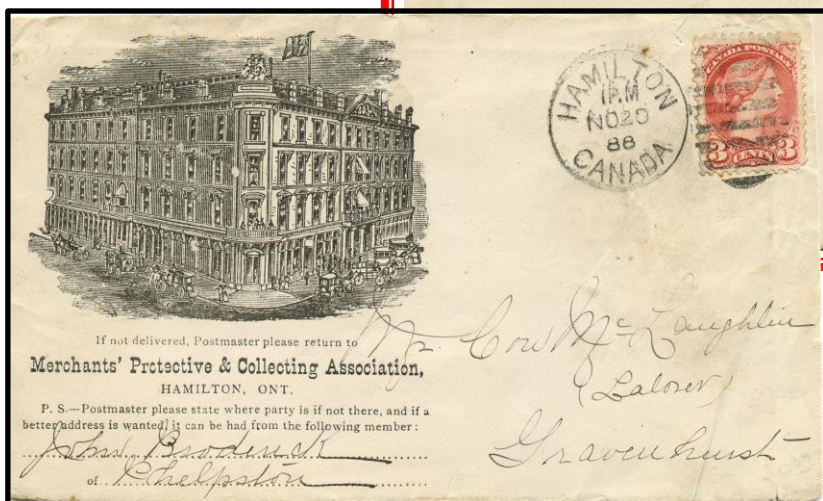 HAMILTON
1 P.M
NO 20
88
CANADA
CANADA POSTAGE
3 CENTS 3
If not delivered, Postmaster please return to
Merchants' Protective & Collecting Association,
HAMILTON, ONT.
P. S.—Postmaster please state where party is if not there, and if a
better address is wanted, it can be had from the following member:
John Broderick
of Phelpston
Mr. McLaughlin
Gravenhurst